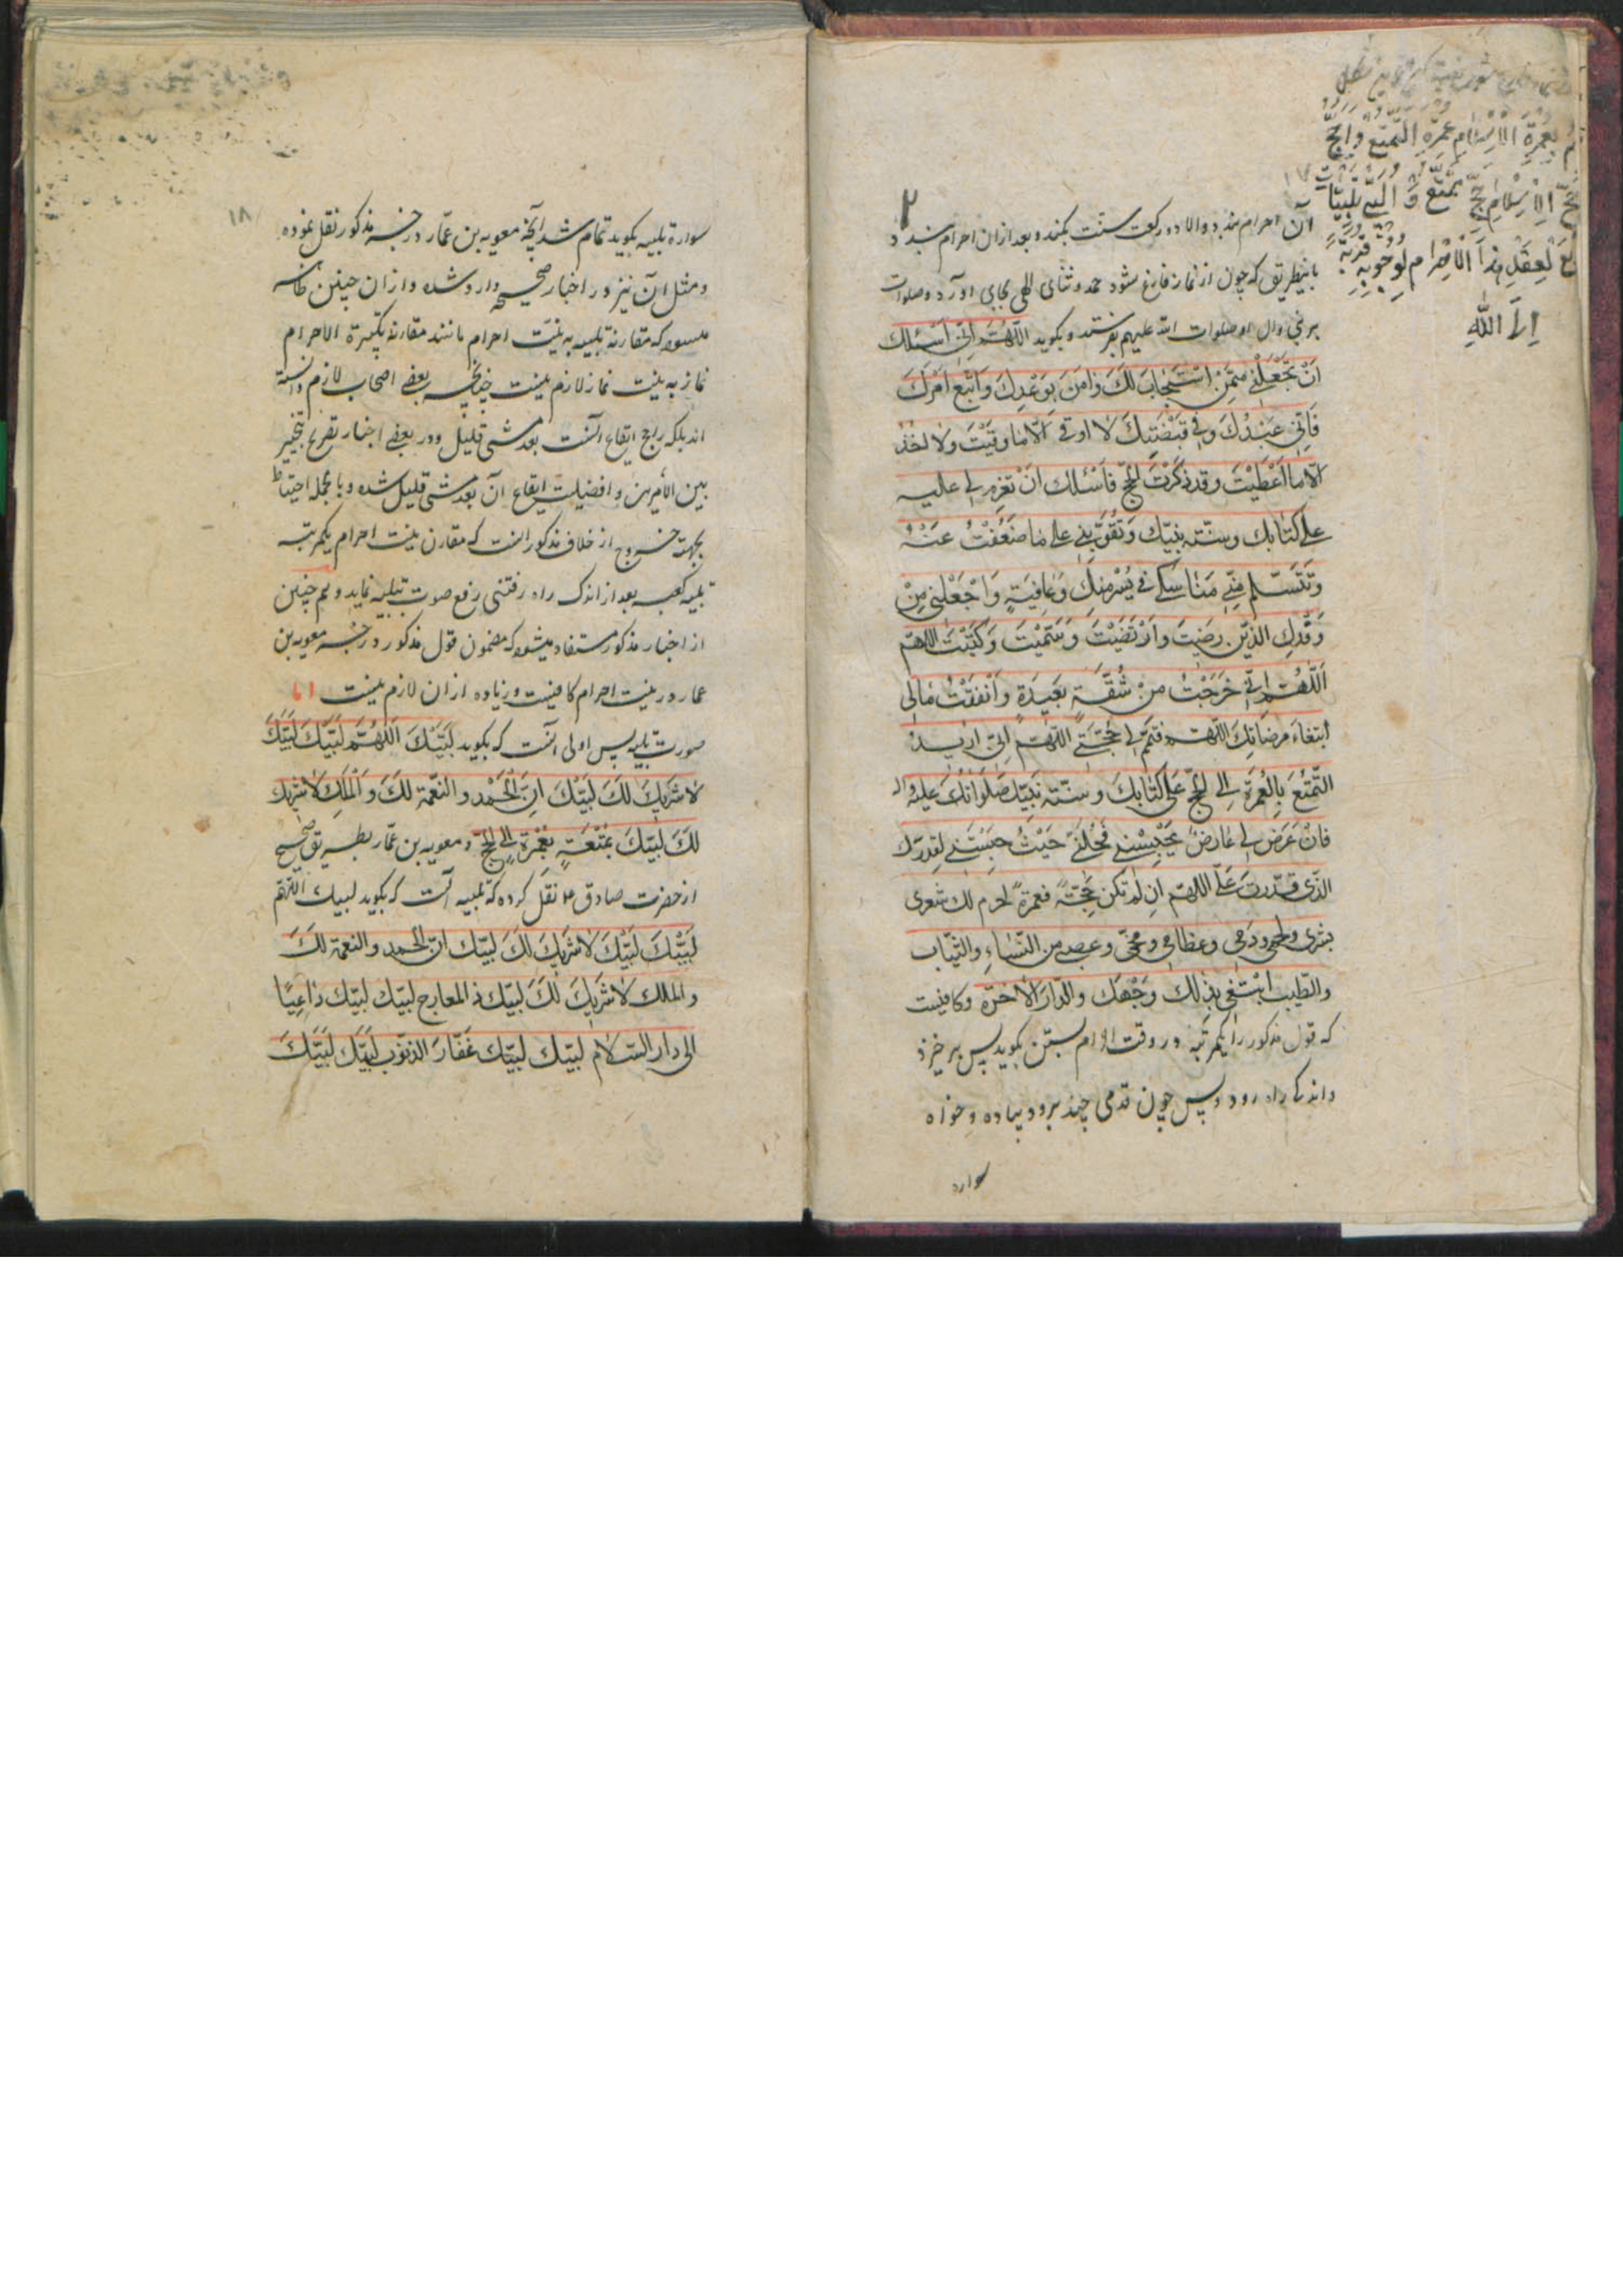 بعمرة الاسلام عمرة التمتع و الحج
حج الاسلام حج تمتع و البی تلبیات
لعقد هذا الاحرام لوجوبه قربة
الی الله
۱۷
آن احرام بندد والا دو رکعت سنت بکند و بعد از ان احرام بندد
باینطریق که چون از نماز فارغ شود حمد و ثنای الهی بجای آورد و صلوات
بر نبی وال او صلوات الله علیهم بفرستد و بکوید اللّهُمّ اِنّی اَسْئَلك
اَنْ تَجْعَلَنی مِمَّنْ اسْتَجابَ لَكَ وَامَنَ بِوَعْدِكَ وَاتَّبَعَ اَمْرَكَ
فَاِنّی عَبْدُكَ وَفی قَبْضَتِكَ لا اوقی اِلّا ما وَقَیْتَ وَلا اخُذُ
اِلّا ما اَعْطَیْتَ وقد ذَکَرْتَ الحجّ فَاَسْئلك انْ تَعْزِمَ لی علیه
علی کتابك وسنّته نبیّك وَتُقَوّیَنی علی ما ضَعُفْتُ عَنْهُ
وَتَتَسَلَّم مِنّی مَناسِکی فی یُسْرٍ مِنْكَ وَعافِیَةٍ وَاجْعَلْنی مِنْ
وَفْدِكَ الذّین رَضیتَ وَارْتَضَیْتَ وَسَمَّیْتَ وَکَتَبْتَ اللهمّ
اَللّهُمّ اِنّی خَرَجْتُ مِنْ شُقَّةٍ بَعیدَةٍ وَاَنْفَقْتُ مالی
ابْتِغاءَ مَرضاتِكَ اللّهمّ فَتَمّم لی حَجَّتی اللّهمّ اِنّی اُریدُ
التَّمَتُّعَ بِالْعُمْرَةِ اِلی الحجّ عَلی کِتابِكَ وسُنّته نَبِیّك صَلَواتُكَ عَلیه واله
فَاِنْ عَرَضَ لی عارِضٌ یَحْبِسُنی فَحُلّنی حَیْثُ حَبَسْتَنی لِقَدَرِك
الذّی قَدّرتَ عَلَیَّ اللهمّ اِن لم تکن حَجّةً فعمرةً احرم لك شعری
بشری ولحمی ودَمی وعظامی ومُخّی وعصبی من النّساءِ والثّیاب
والطّیب ابْتَغی بِذلك وَجْهَك والدّارَ الاخرَة وکافیست
که قول مذکور را یکمرتبه در وقت احرام بستن بکوید پس برخیزد
واندکی راه رود وپس چون قدمی چند برود پیاده وخواه
سواره
۱۸
سواره تلبیه بکوید تمام شد آنچه معویه بن عمّار در خبر مذکور نقل نموده
ومثل آن نیز در اخبار صحیحه وارد شده وازان چنین ظاهر
میشود که مقارنه تلبیه به نیّت احرام مانند مقارنه تکبیرة الاحرام
نماز به نیت نماز لازم نیست چنانچه بعضی اصحاب لازم دانسته
اند بلکه راجح ایقاع آنست بعد مشی قلیل ودر بعضی اخبار تصریح بتخییر
بین الامرین و افضلیت ایقاع آن بعد مشی قلیل شده وبالجمله احتیاط
بجهة خروج از خلاف مذکور انست که مقارن نیت احرام یکمرتبه
تلبیه کند وبعد از اندک راه رفتنی رفع صوت بتلبیه نماید وهم چنین
از اخبار مذکور مستفاد میشود که مضمون قول مذکور در خبر معویه بن
عمار در نیت احرام کافیست وزیاده از ان لازم نیست اما
صورت تلبیه پس اولی انست که بکوید لَبَّیْكَ اَللّهُمّ لَبَّیْكَ لَبَّیْكَ
لاشَریكَ لَكَ لَبَّیْكَ اِنَّ الْحَمْدَ والنّعْمَةَ لَكَ وَالْمُلكَ لاشَریك
لَكَ لَبّیكَ بِمُتْعَةٍ بِعُمْرَةٍ اِلی الحجّ و معویه بن عمّار بطریق صحیح
از حضرت صادق ع نقل کرده که تلبیه آنست که بکوید لبیك اللّهمّ
لَبّیْكَ لَبّیْكَ لاشَریكَ لَكَ لبّیك انّ الحمد والنعمة لَكَ
والملك لاشَریكَ لَكَ لبّیك ذا المعارج لبّیك لبّیك داعِیًا
الی دار السّلام لبّیك لبّیك غَفّارَ الذنوب لبّیك لَبّیكَ